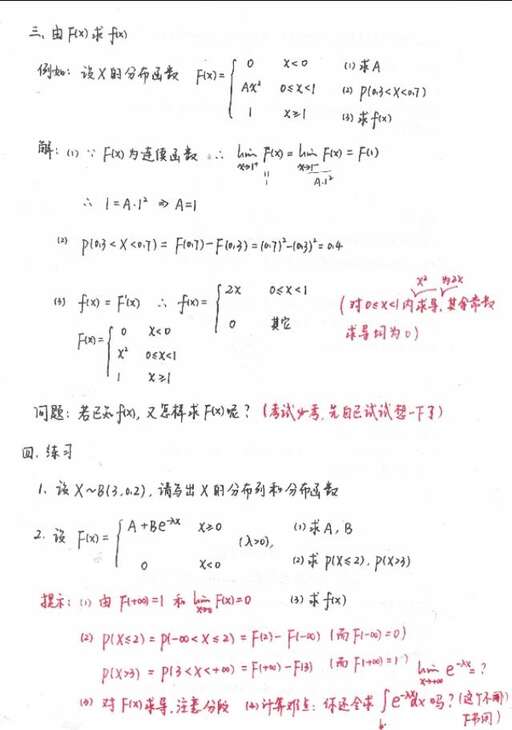 三、由F(x)求f(x)
例如：设X的分布函数 F(x)={ 0 x<0 (1) 求A
Ax² 0≤x<1 (2) P(0.3<X<0.7)
1 x≥1 (3) 求f(x)
解：(1) ∵ F(x)为连续函数 ∴ lim x→1⁺ F(x) = lim x→1⁻ F(x) = F(1)
1 A·1²
∴ 1=A·1² ⇒ A=1
(2) P(0.3<X<0.7) = F(0.7)-F(0.3)=(0.7)²-(0.3)²=0.4
(3) f(x)=F'(x) ∴ f(x)={ 2x 0≤x<1
0 其它
x² 为2x
(对0≤x<1内求导，其余常数
求导均为0)
F(x)={ 0 x<0
x² 0≤x<1
1 x≥1
问题：若已知f(x)，又怎样求F(x)呢？(考试必考，先自己试试想一下了)
四、练习
1. 设X~B(3,0.2)，请写出X的分布列和分布函数
2. 设 F(x)={ A+Be^{-λx} x≥0 (λ>0), (1) 求A, B
0 x<0 (2) 求P(X≤2), P(X>3)
(3) 求f(x)
提示：(1) 由F(+∞)=1 和 lim x→0 F(x)=0
(2) P(X≤2) = P(-∞<X≤2) = F(2)-F(-∞) (而F(-∞)=0)
P(X>3) = P(3<X<+∞) = F(+∞)-F(3) (而F(+∞)=1) lim x→+∞ e^{-λx}=?
(3) 对F(x)求导，注意分段 (4)计算难点：你还会求∫e^{-λx}dx吗？(这个不用)
下书问)